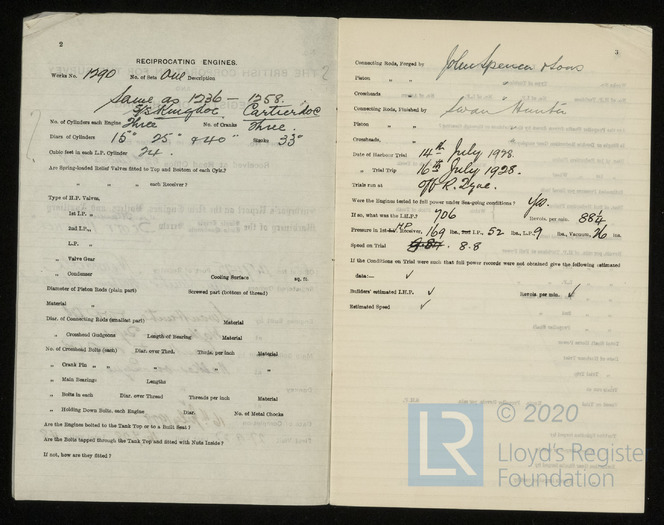 2
RECIPROCATING ENGINES.
Works No. 1290 No. of Sets One Description
Same as 1236 – 1258.
S/S Kingdoc Cartierdoc
No. of Cylinders each Engine Three No. of Cranks Three.
Diars. of Cylinders 15" 25" & 40" Stroke 33"
Cubic feet in each L.P. Cylinder 24.
Are Spring-loaded Relief Valves fitted to Top and Bottom of each Cylr.?
" " " each Receiver?
Type of H.P. Valves,
1st I.P. "
2nd I.P. "
L.P. "
" Valve Gear
" Condenser Cooling Surface sq. ft.
Diameter of Piston Rods (plain part) Screwed part (bottom of thread)
Material "
Diar. of Connecting Rods (smallest part) Material
" Crosshead Gudgeons Length of Bearing Material
No. of Crosshead Bolts (each) Diar. over Thrd. Thrds. per inch Material
" Crank Pin " " " "
" Main Bearings Lengths
" Bolts in each Diar. over Thread Threads per inch Material
" Holding Down Bolts, each Engine Diar. No. of Metal Chocks
Are the Engines bolted to the Tank Top or to a Built Seat?
Are the Bolts tapped through the Tank Top and fitted with Nuts Inside?
If not, how are they fitted?
3
Connecting Rods, Forged by John Spencer & Sons
Piston " "
Crossheads
Connecting Rods, Finished by Swan Hunter
Piston " "
Crossheads, "
Date of Harbour Trial 14th July 1928.
" Trial Trip 16th July 1928.
Trials run at Off R. Tyne.
Were the Engines tested to full power under Sea-going conditions? Yes.
If so, what was the I.H.P.? 706 Revols. per min. 88¼
Pressure in 1st H.P. Receiver, 169 lbs., 1st I.P., 52 lbs., L.P. 9 lbs., Vacuum, 26 ins.
Speed on Trial 8.8
If the Conditions on Trial were such that full power records were not obtained give the following estimated
data:— ✓
Builders' estimated I.H.P. ✓ Revols. per min. ✓
Estimated Speed ✓
© 2020
LR
Lloyd's Register
Foundation